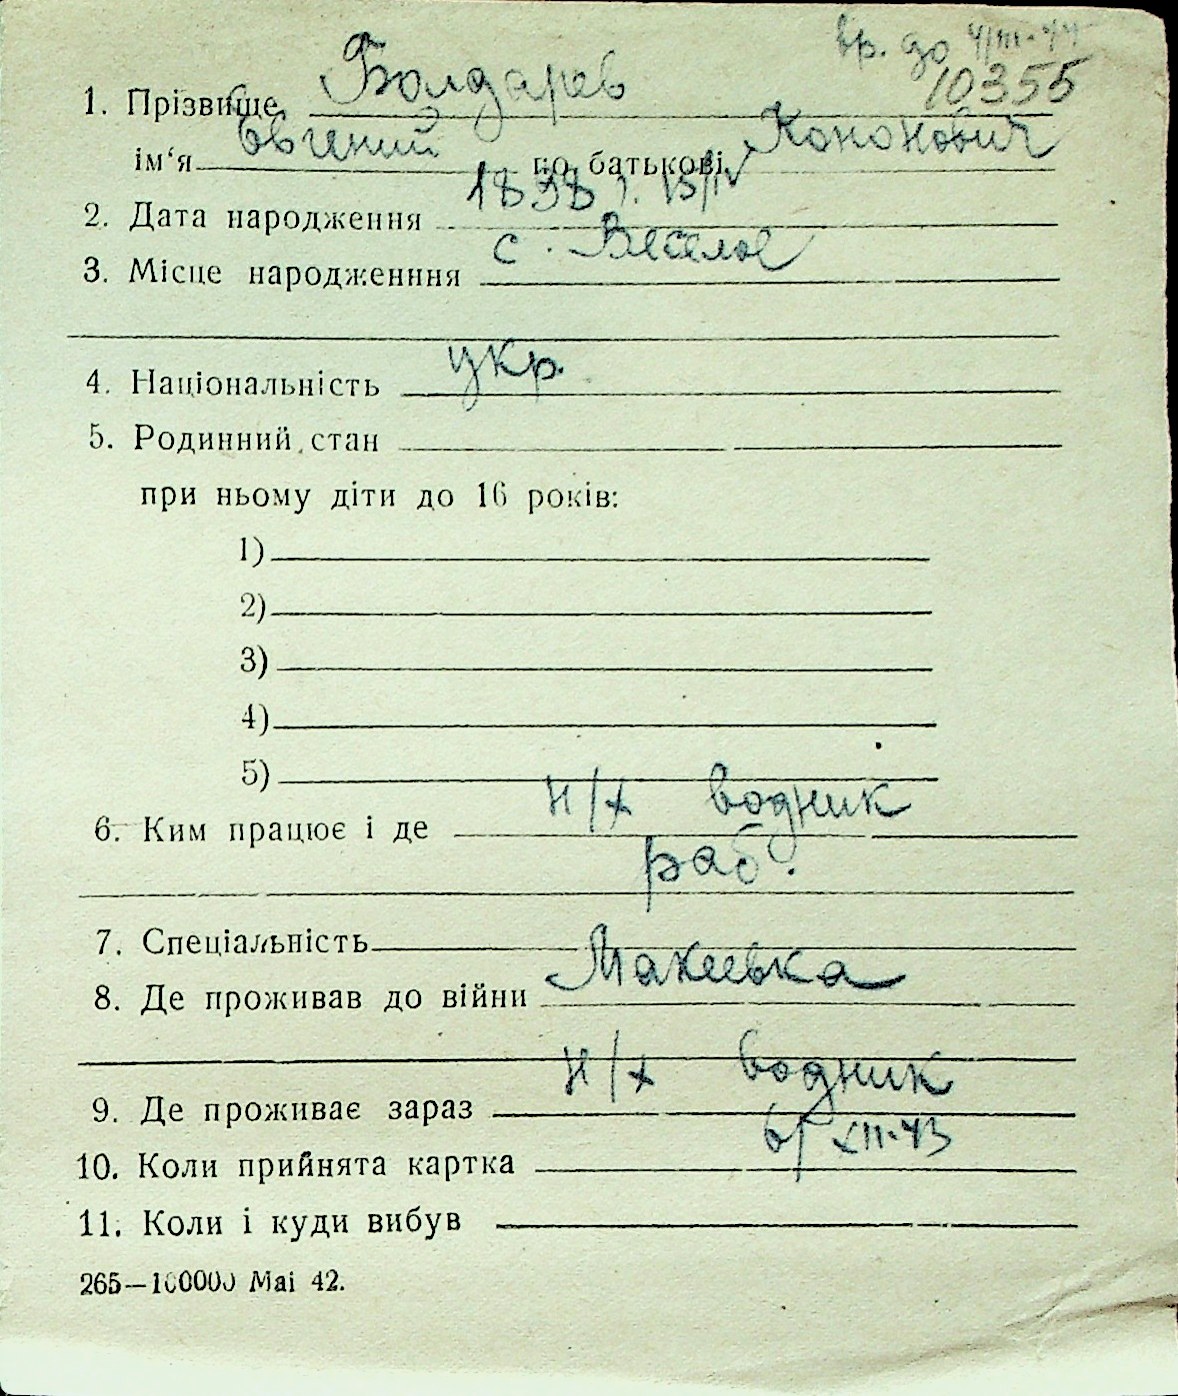 вр. до 4/III-44
10355
1. Прізвище Болдарев
ім‘я Евгений по батькові Кононович
2. Дата народження 1898 г. 15/IV
3. Місце народженння с. Веселое
4. Національність укр.
5. Родинний стан
при ньому діти до 16 років:
1)
2)
3)
4)
5)
6. Ким працює і де н/х водник
раб.
7. Спеціальність
8. Де проживав до війни Макеевка
9. Де проживає зараз н/х водник
10. Коли прийнята картка 6/XII-43
11. Коли і куди вибув
265—100000 Mai 42.